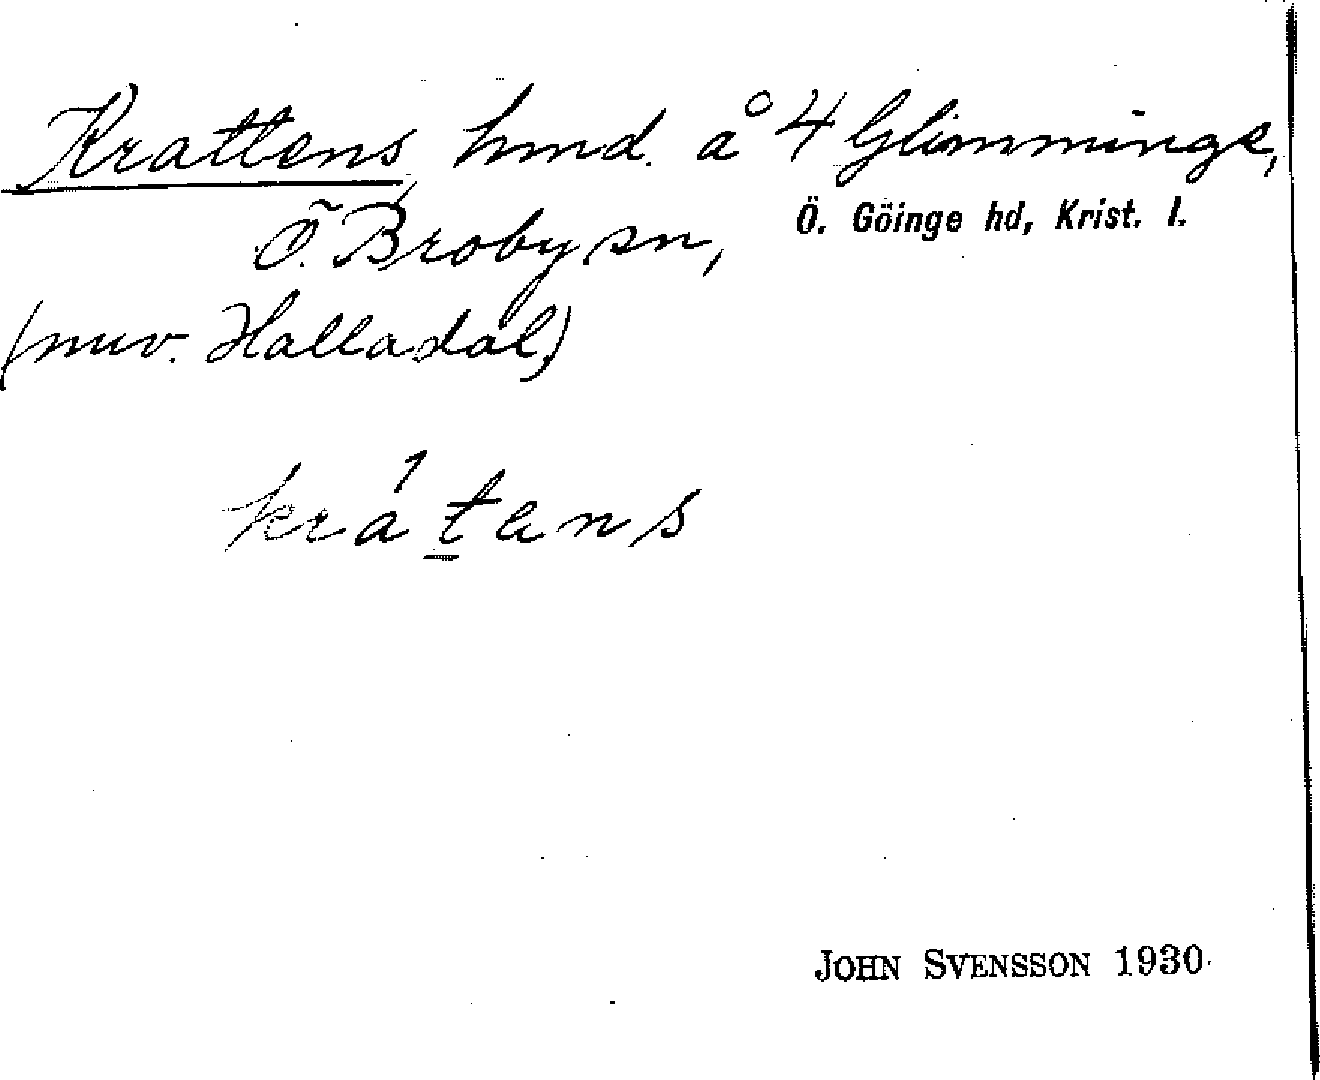 Krattens, hmd. å 4 Glimminge,
Ö. Broby sn, Ö. Göinge hd, Krist. l.
(nuv. Halladal)
krátens
JOHN SVENSSON 1930